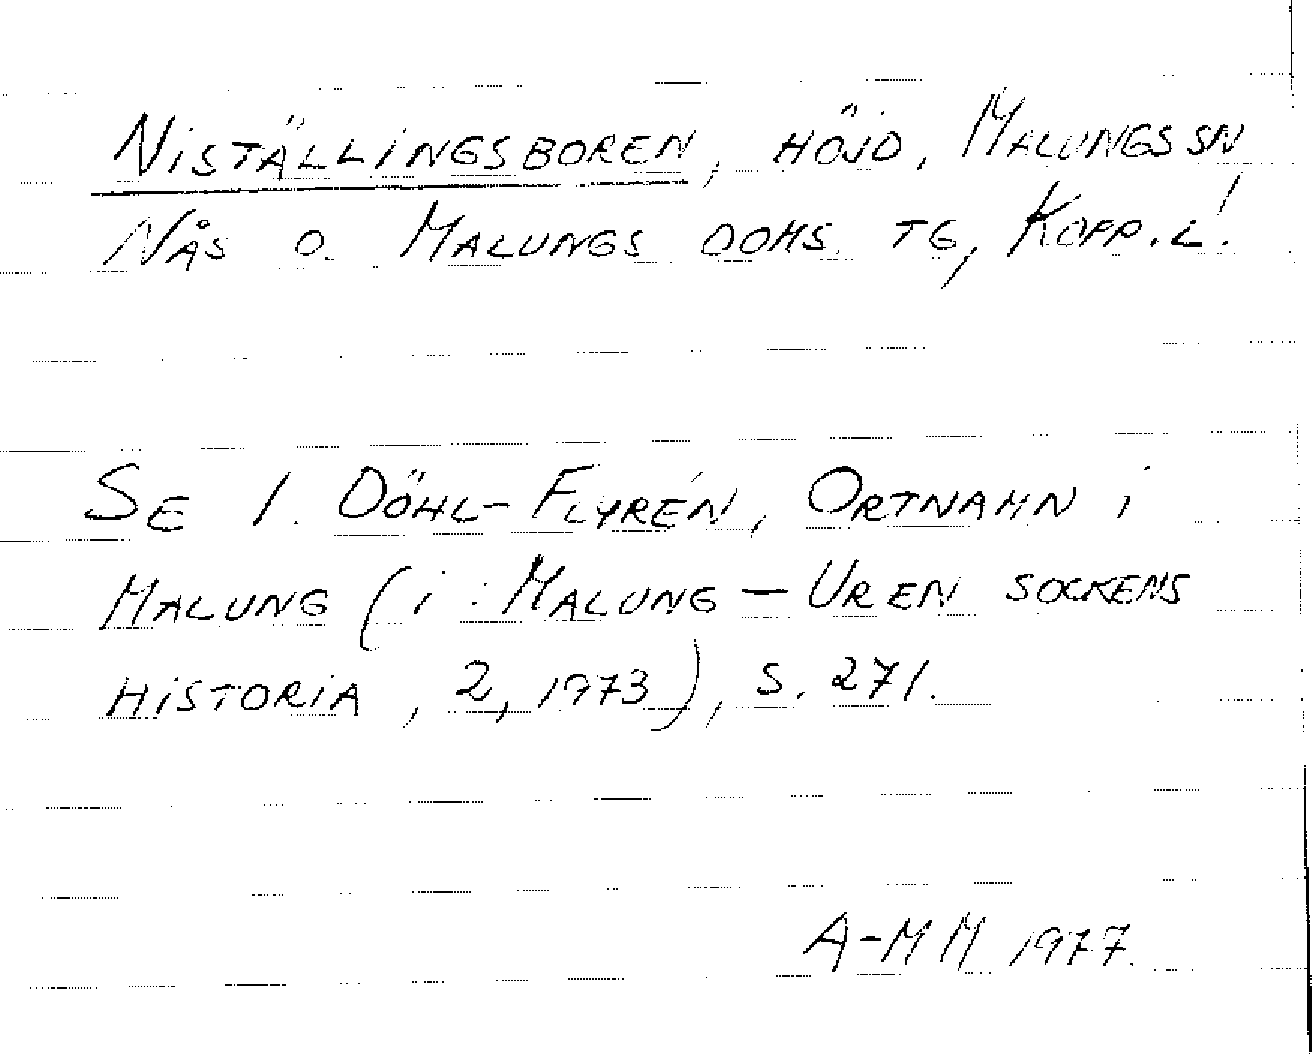 NISTÄLLINGSBOREN, HÖJD, MALUNGS SN
NÅS O. MALUNGS DOMS. TG, KOPP. L!
SE I. DÖHL-FLYRÉN, ORTNAMN I
MALUNG (I: MALUNG — UR EN SOCKENS
HISTORIA, 2, 1973), S. 271.
A-MM 1977.